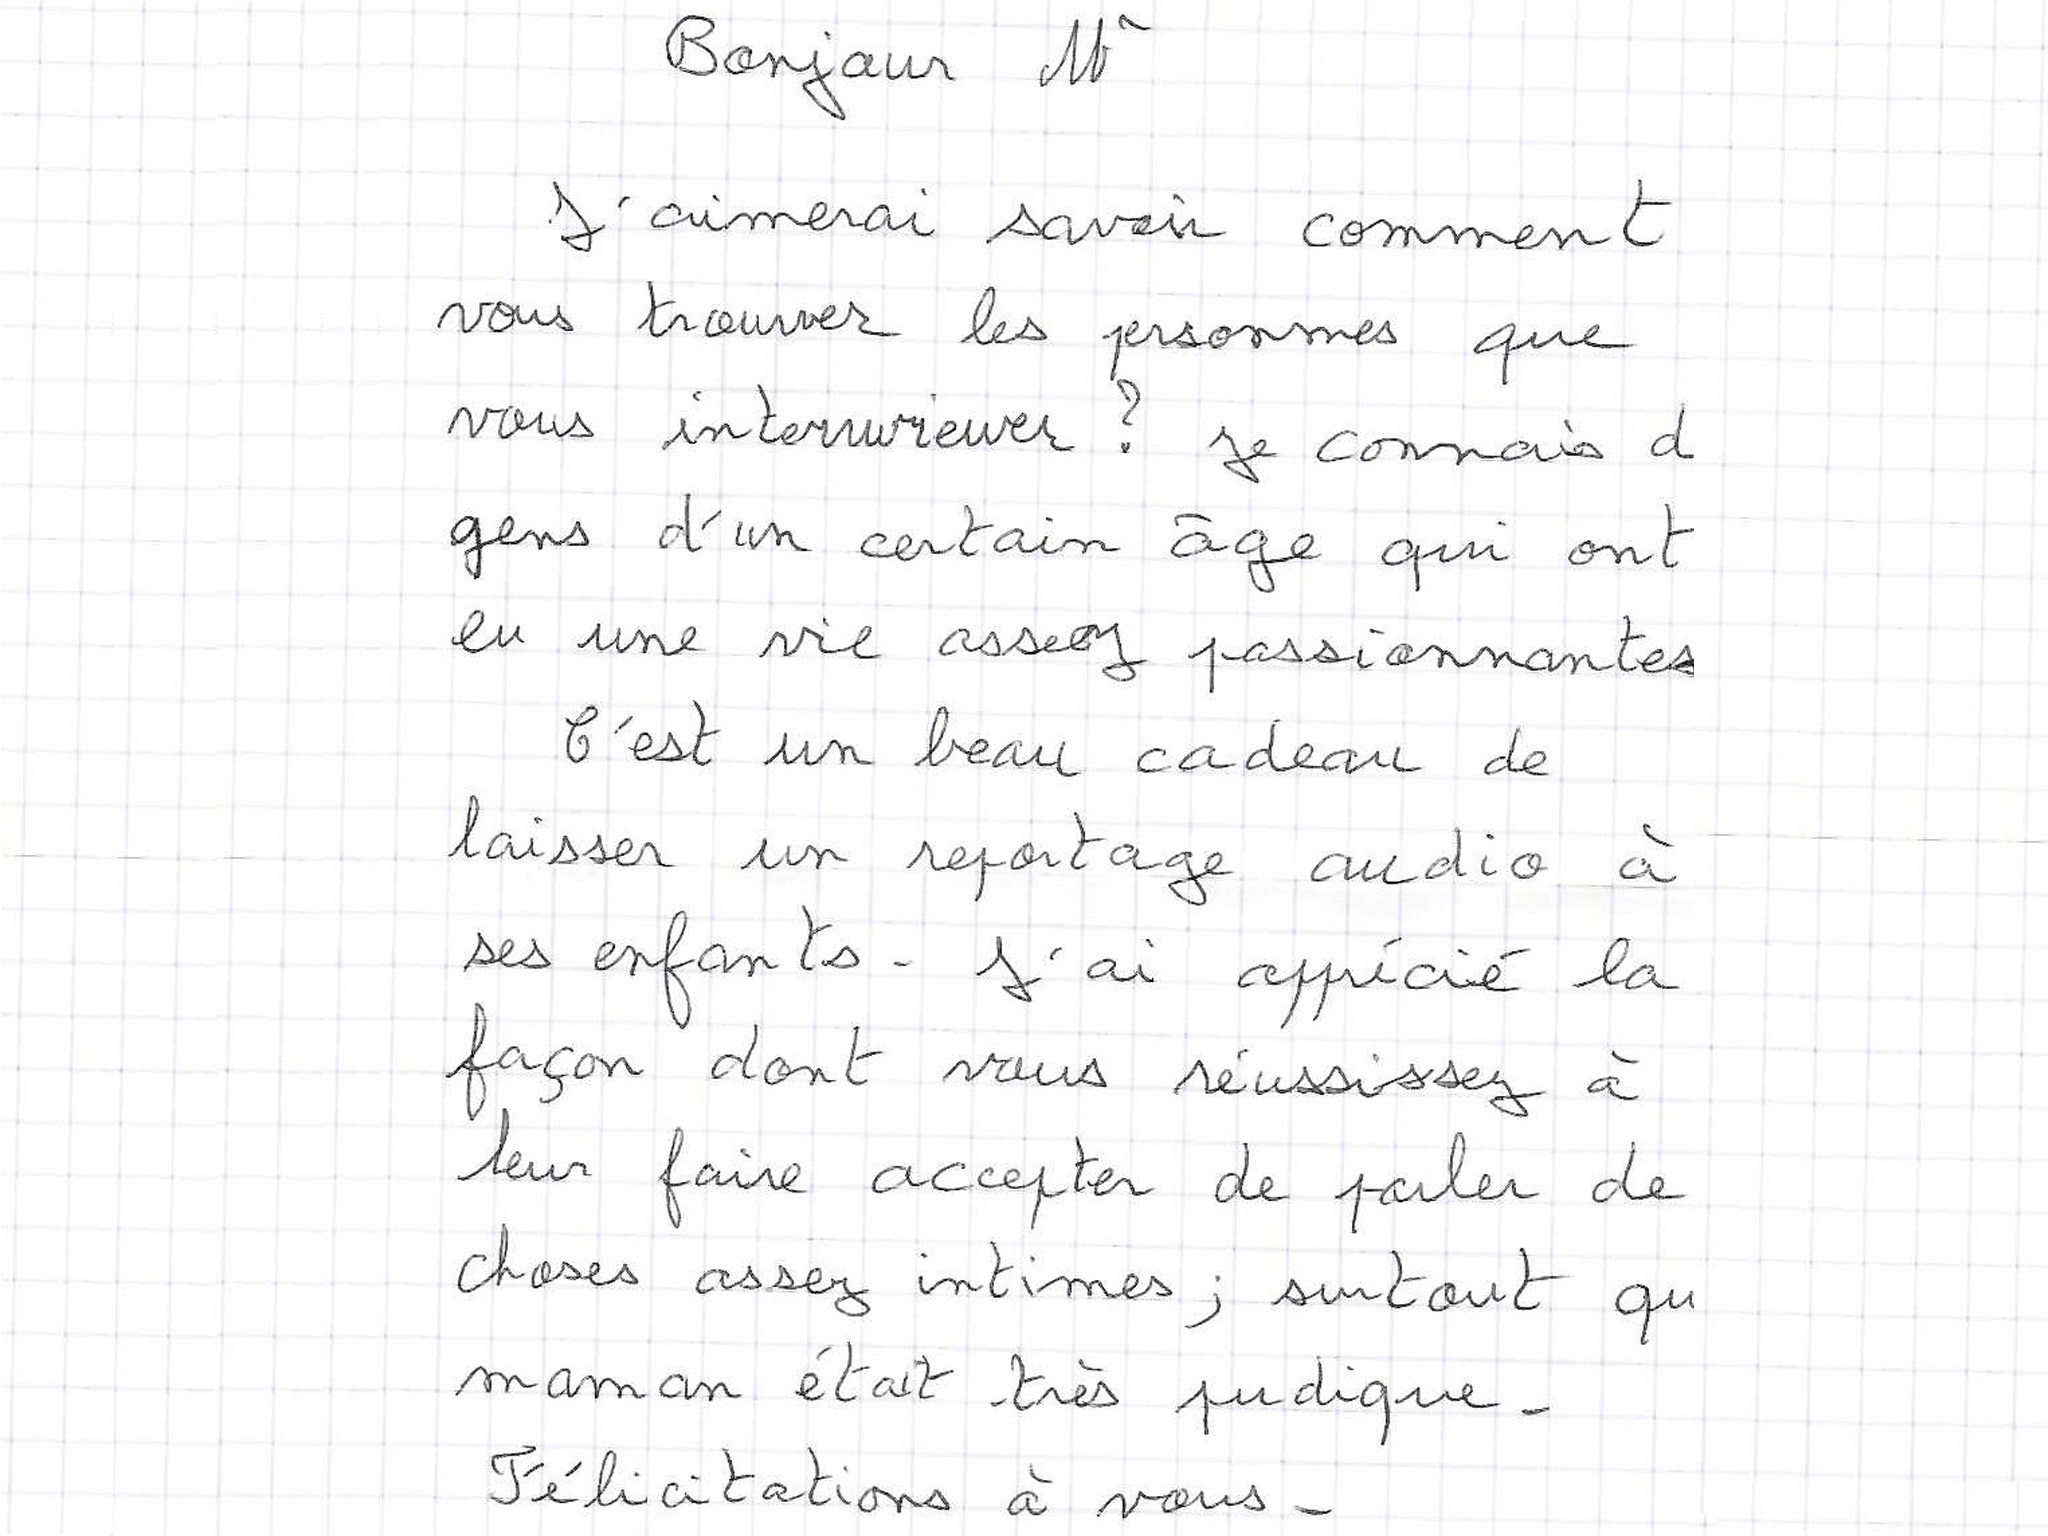 Bonjour M
J'aimerai savoir comment
vous trouver les personnes que
vous interwiewer ? Je connais d
gens d'un certain âge qui ont
eu une vie assez passionnantes
C'est un beau cadeau de
laisser un reportage audio à
ses enfants - J'ai apprécié la
façon dont vous réussissez à
leur faire accepter de parler de
choses assez intimes ; surtout qu
maman était très pudique -
Félicitations à vous -